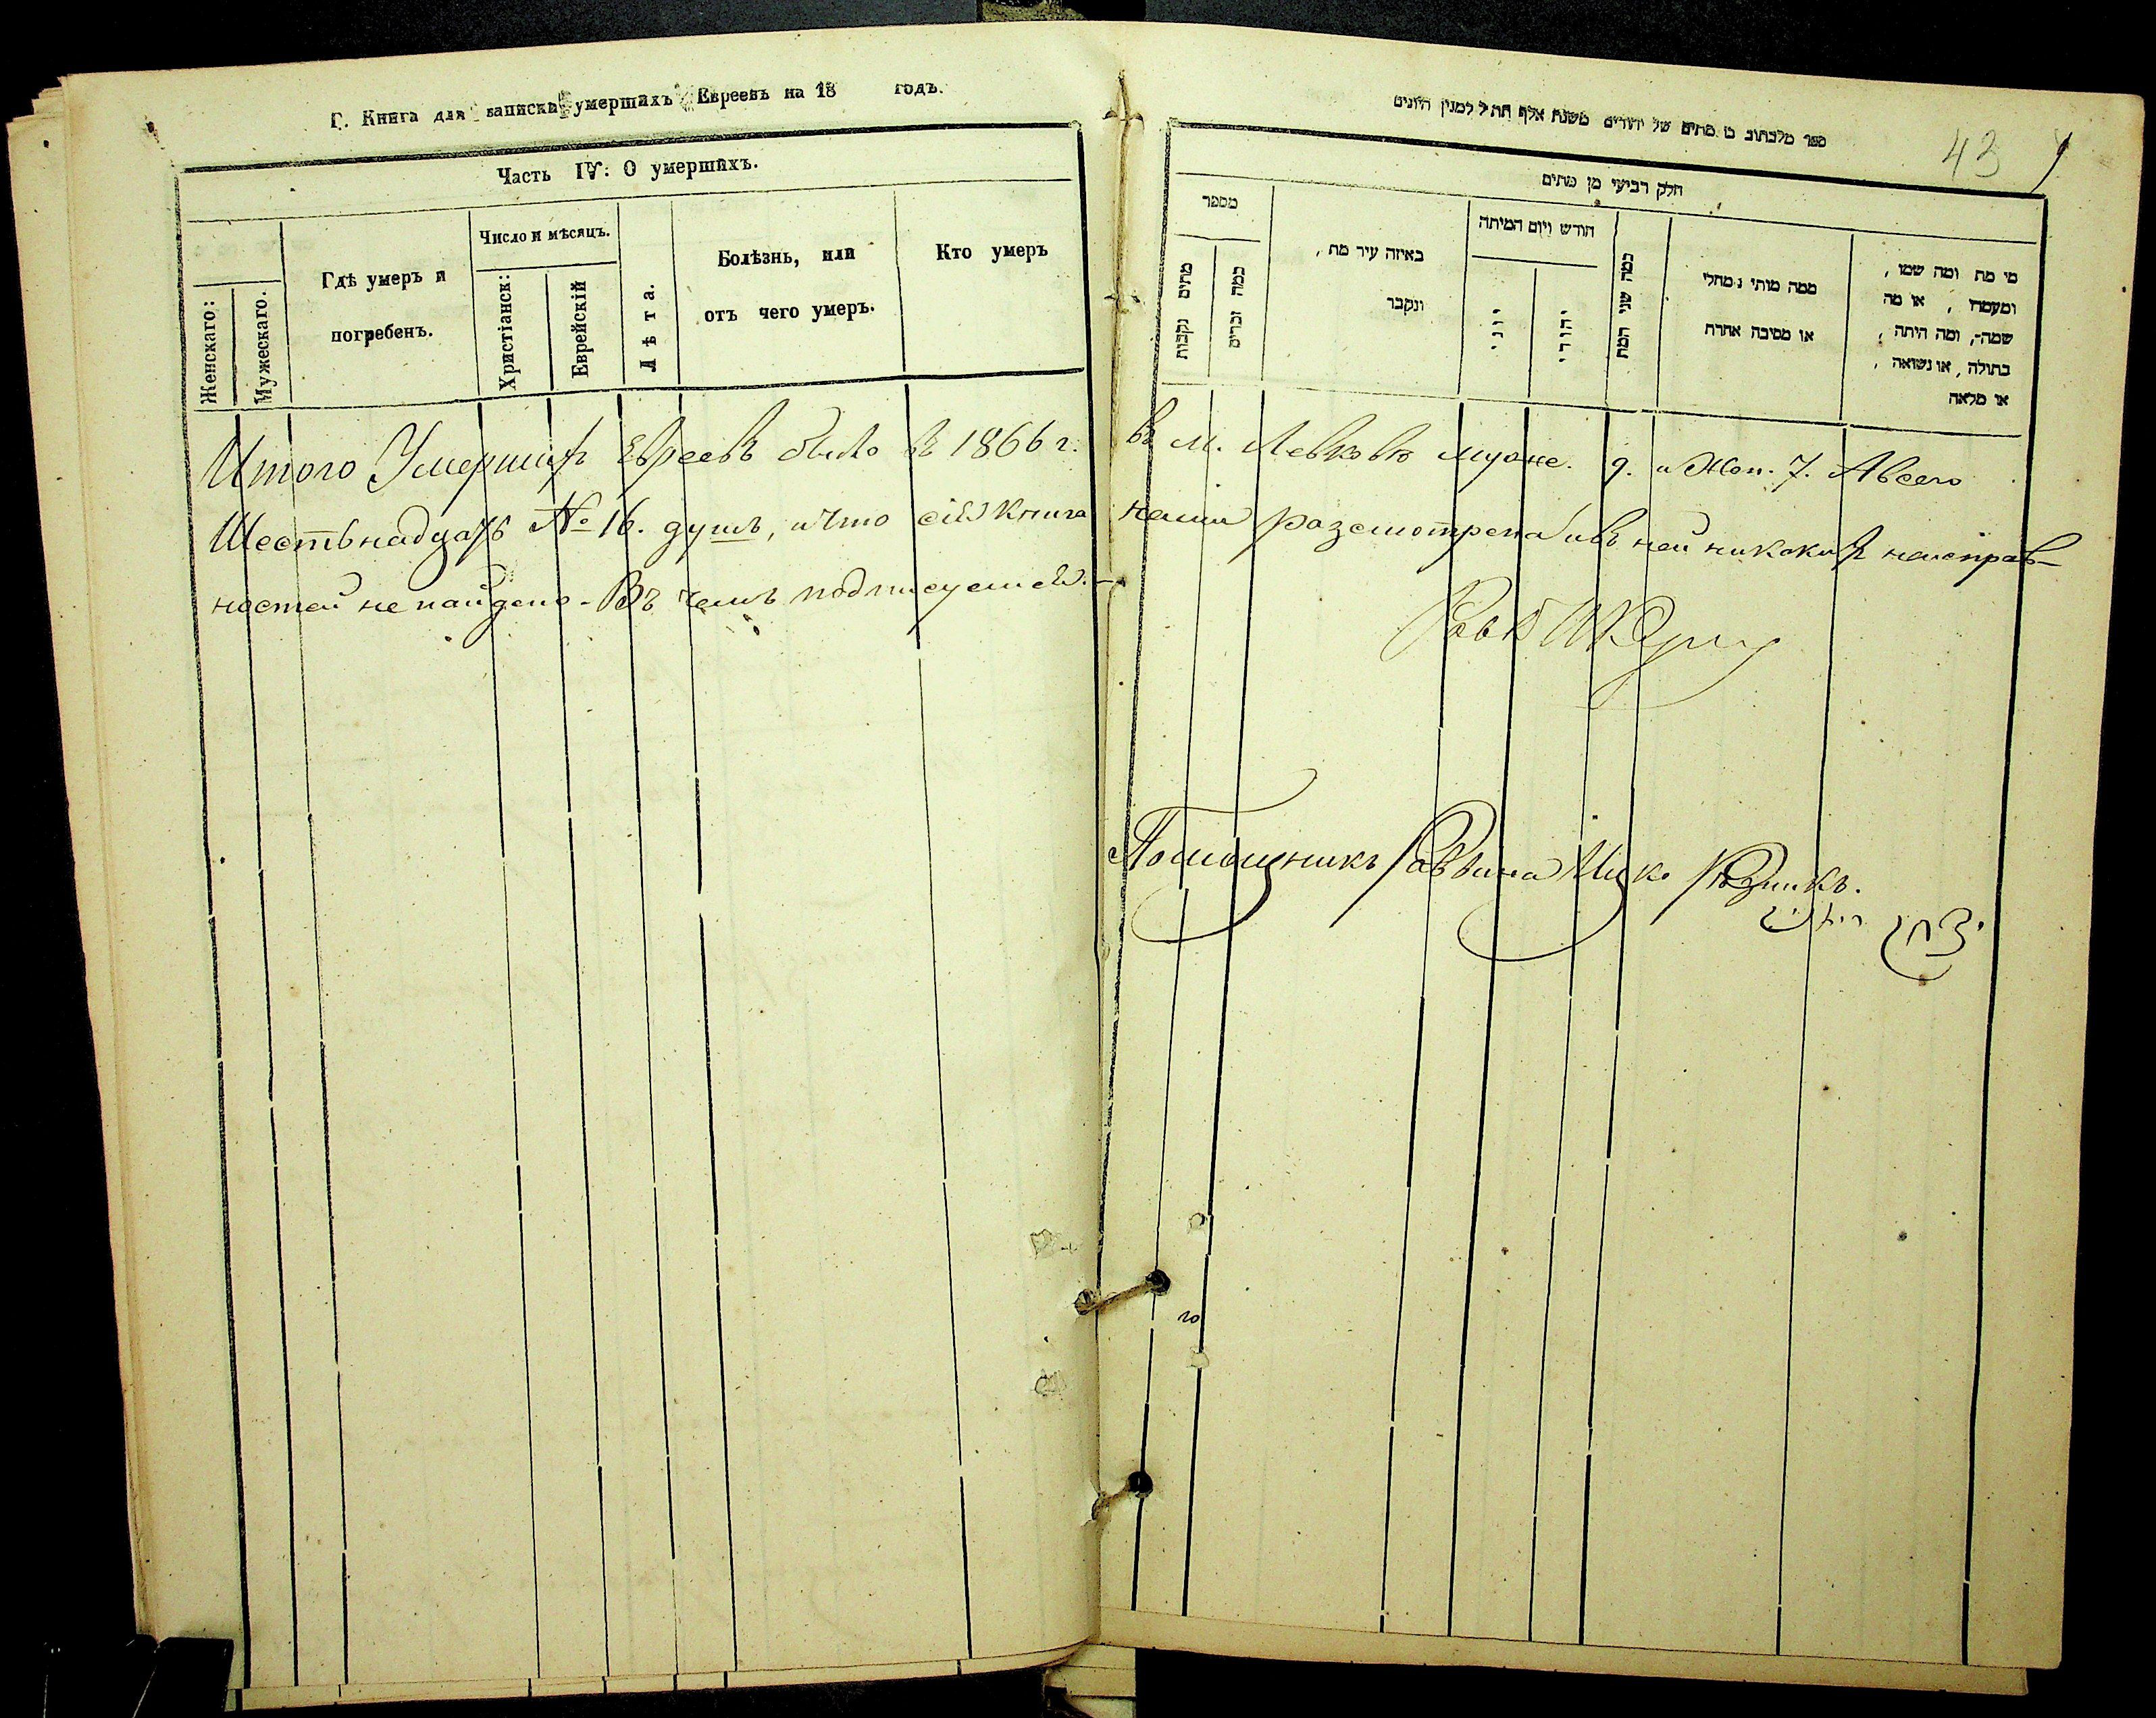 Г. Книга для записки умершихъ Евреевъ на 18 годъ.
Часть IV: О умершихъ.
Женскаго:
Мужескаго.
Гдѣ умеръ и
погребенъ.
Число и мѣсяцъ.
Христіанск:
Еврейскій
Лѣта.
Болѣзнь, или
отъ чего умеръ.
Кто умеръ
Итого Умершихъ Евреевъ было въ 1866 г.
Шестьнадцать № 16. душъ, и что сія книга
ностей не найдено. - Въ чемъ подписуемся. -
ספר מלכתוב מ מתים של יהודים משנת אלף תת״ל למנין היונים
43
חלק רביעי מן מתים
מספר
מתים נקבות
כמה זכרים
באיזה עיר מת,
ונקבר
חודש ויום המיתה
יוני
יהודי
כמה שני המת
ממה מותי נמחלי
או מסיבה אחרת
מי מת ומה שמו,
ומעמדו, או מה
שמה, ומה היתה,
בתולה, או נשואה,
או מלאה
въ м. Левковѣ муже. 9. и Жен. 7. А всего
нами разсмотрена и въ ней никакихъ неисправ-
Помощникъ Раввина Ицко Рѣзникъ.
יצחק רויזניק